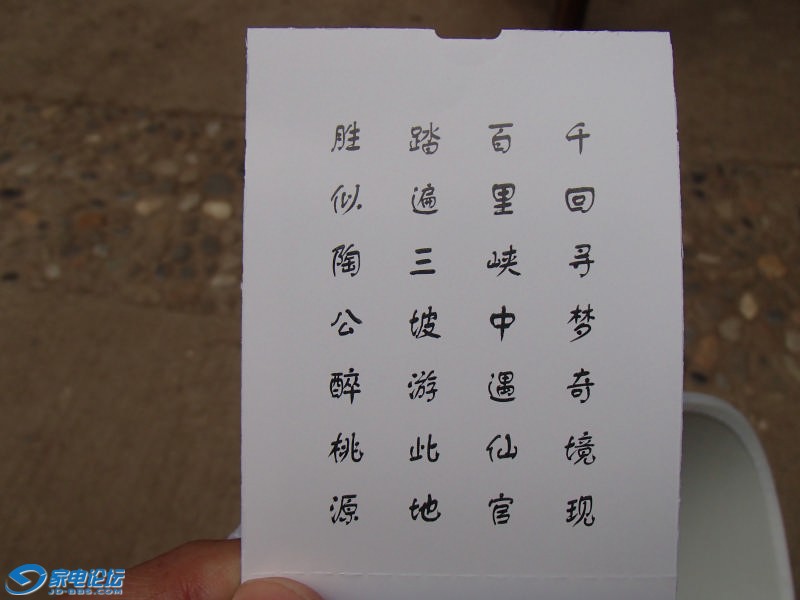 千回寻梦奇境现
百里峡中遇仙官
踏遍三坡游此地
胜似陶公醉桃源
家电论坛
JD-BBS.COM